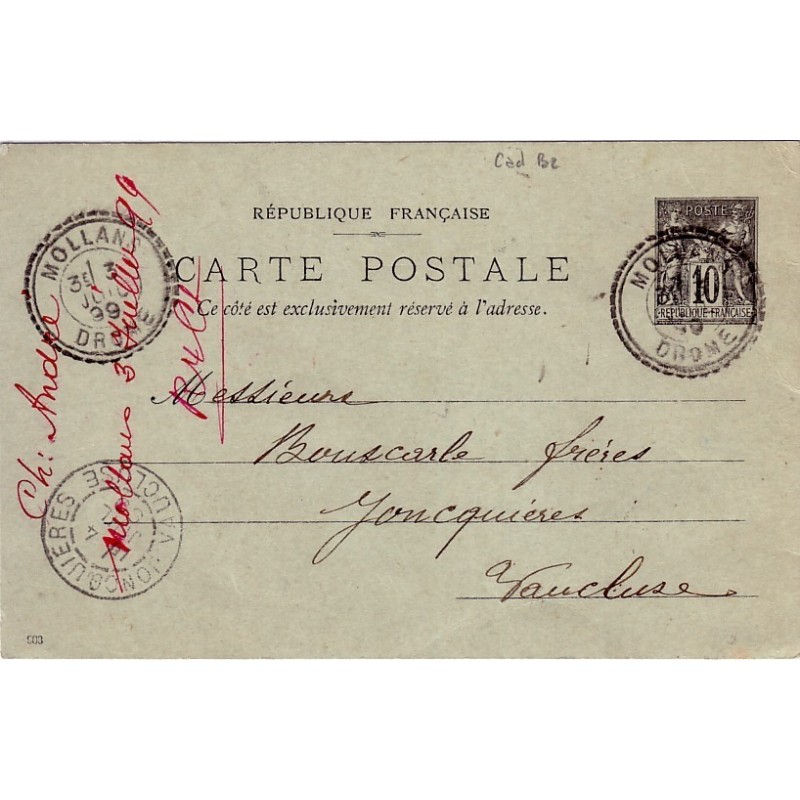 Cad B2
RÉPUBLIQUE FRANÇAISE
CARTE POSTALE
Ce côté est exclusivement réservé à l'adresse.
POSTE
10
RÉPUBLIQUE FRANÇAISE
MOLLANS
DROME
MOLLANS
3
99
DROME
Messieurs
Bouscarle frères
Joncquières
Vaucluse
Ch: André
Mollans 3 Juillet 99
JONCQUIERES VAUCLUSE
903